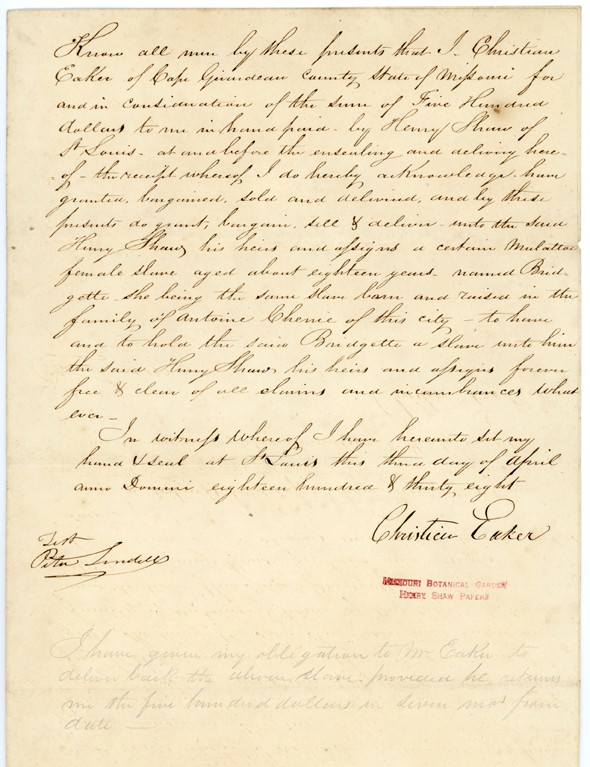 Know all men by these presents that I Christian
Eaker of Cape Girardeau county State of Missouri for
and in consideration of the sum of Five Hundred
dollars to me in hand paid - by Henry Shaw of
St Louis - at and before the ensealing and delivery here-
of - the receipt whereof I do hereby acknowledge - have
granted, bargained, sold and delivered, and by these
presents do grant, bargain, sell & deliver - unto the said
Henry Shaw, his heirs and assigns a certain Mulattoe
female slave aged about eighteen years - named Brid-
gette - she being the same slave born and raised in the
family of Antoine Chenie of this city - to have
and to hold the said Bridgette a slave unto him
the said Henry Shaw his heirs and assigns forever
free & clear of all claims and incumbrances what
ever -
In witness whereof I have hereunto set my
hand & seal at St Louis this third day of April
anno Domini eighteen hundred & thirty eight
Christian Eaker
Test
Peter Lindell
MISSOURI BOTANICAL GARDEN
HENRY SHAW PAPERS
I have given my obligation to Mr Eaker to
deliver back the above slave: provided he returns
me the five hundred dollars in seven mos from
date -